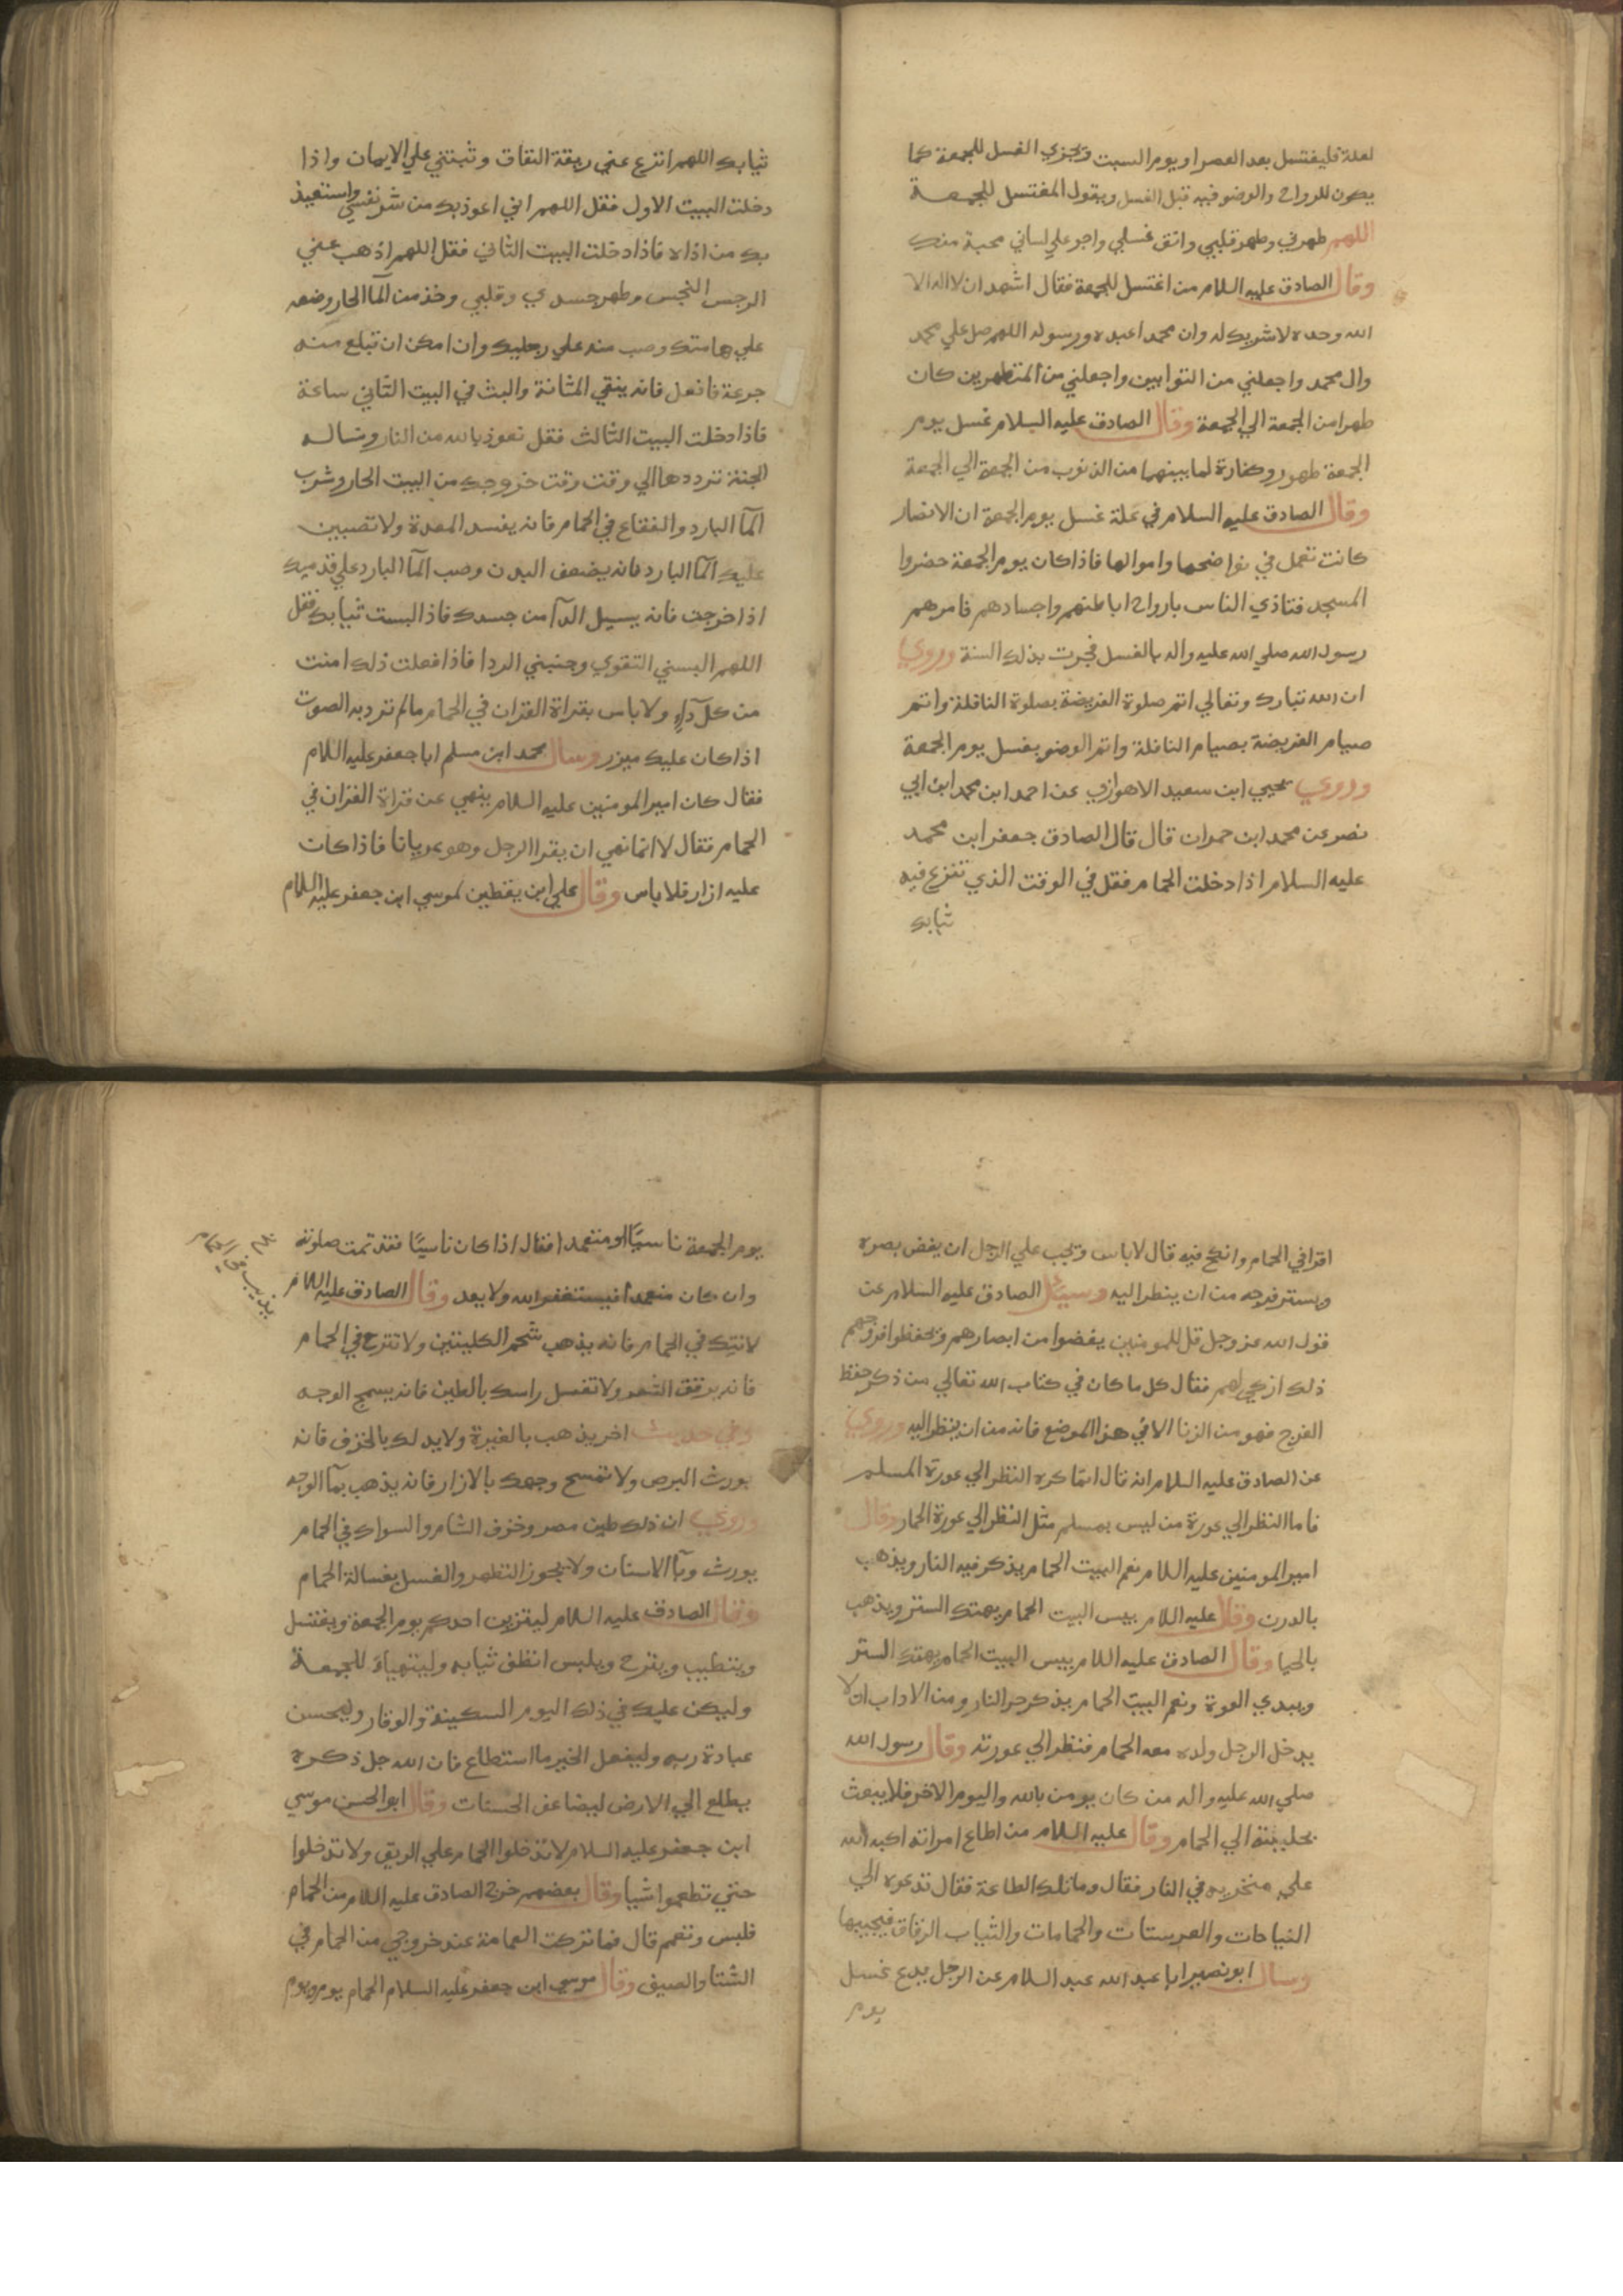 لعلة فليغتسل بعد العصر او يوم السبت ويجزي الغسل للجمعة كما
يكون للرواح والوضو فيه قبل الغسل ويقول المغتسل للجمعة
اللهم طهرني وطهر قلبي وانق غسلي واجر علي لساني محبة منك
وقال الصادق عليه السلام من اغتسل للجمعة فقال اشهد ان لا اله الا
الله وحده لا شريك له وان محمدا عبده ورسوله اللهم صل علي محمد
وال محمد واجعلني من التوابين واجعلني من المتطهرين كان
طهرا من الجمعة الي الجمعة وقال الصادق عليه السلام غسل يوم
الجمعة طهور وكفارة لما بينهما من الذنوب من الجمعة الي الجمعة
وقال الصادق عليه السلام في علة غسل يوم الجمعة ان الانصار
كانت تعمل في نواضحها واموالها فاذا كان يوم الجمعة حضروا
المسجد فتاذي الناس بارواح اباطنهم واجسادهم فامرهم
رسول الله صلي الله عليه واله بالغسل فجرت بذلك السنة وروي
ان الله تبارك وتعالي اتم صلوة الفريضة بصلوة النافلة واتم
صيام الفريضة بصيام النافلة واتم الوضو بغسل يوم الجمعة
وروي يحيي ابن سعيد الاهوازي عن احمد ابن محمد ابن ابي
نصر عن محمد ابن حمران قال قال الصادق جعفر ابن محمد
عليه السلام اذا دخلت الحمام فقل في الوقت الذي تنزع فيه
ثيابك
ثيابك اللهم انزع عني ربقة النفاق وثبتني علي الايمان واذا
دخلت البيت الاول فقل اللهم اني اعوذ بك من شر نفسي واستعيذ
بك من اذاه فاذا دخلت البيت الثاني فقل اللهم اذهب عني
الرجس النجس وطهر جسدي وقلبي وخذ من المآ الحار وضعه
علي هامتك وصب منه علي رجليك وان امكن ان تبلع منه
جرعة فافعل فانه ينقي المثانة والبث في البيت الثاني ساعة
فاذا دخلت البيت الثالث فقل نعوذ بالله من النار ونساله
الجنة ترددها الي وقت وقت خروجك من البيت الحار وشرب
المآ البارد والفقاع في الحمام فانه يفسد المعدة ولا تصبين
عليك المآ البارد فانه يضعف البدن وصب المآ البارد علي قدميك
اذا خرجت فانه يسيل الدآ من جسدك فاذ البست ثيابك فقل
اللهم البسني التقوي وجنبني الردا فاذا فعلت ذلك امنت
من كل دآء ولا باس بقراة القران في الحمام ما لم ترد به الصوت
اذا كان عليك ميزر وسال محمد ابن مسلم ابا جعفر عليه السلام
فقال كان امير المومنين عليه السلام ينهي عن قراة القران في
الحمام فقال لا انما نهي ان يقرا الرجل وهو عريانا فاذا كان
عليه ازار فلا باس وقال علي ابن يقطين لموسي ابن جعفر عليه السلام
اقرا في الحمام وانكح فيه قال لا باس ويجب علي الرجل ان يغض بصره
ويستر فرجه من ان ينظر اليه وسئل الصادق عليه السلام عن
قول الله عز وجل قل للمومنين يغضوا من ابصارهم ويحفظوا فروجهم
ذلك ازكي لهم فقال كل ما كان في كتاب الله تعالي من ذكر حفظ
الفرج فهو من الزنا الا في هذا الموضع فانه من ان ينظر اليه وروي
عن الصادق عليه السلام انه قال انما كره النظر الي عورة المسلم
فاما النظر الي عورة من ليس بمسلم مثل النظر الي عورة الحمار وقال
امير المومنين عليه السلام نعم البيت الحمام يذكر فيه النار ويذهب
بالدرن وقال عليه السلام بيس البيت الحمام يهتك الستر ويذهب
بالحيا وقال الصادق عليه السلام بيس البيت الحمام يهتك الستر
ويبدي العورة ونعم البيت الحمام يذكر حر النار ومن الاداب ان لا
يدخل الرجل ولده معه الحمام فينظر الي عورته وقال رسول الله
صلي الله عليه واله من كان يومن بالله واليوم الاخر فلا يبعث
بحليلته الي الحمام وقال عليه السلام من اطاع امراته اكبه الله
علي منخريه في النار فقال وما تلك الطاعة فقال تدعوه الي
النياحات والعرسات والحمامات والثياب الرقاق فيجيبها
وسال ابو نصير ابا عبد الله عبد السلام عن الرجل يدع غسل
يوم
يوم الجمعة ناسيًا او متعمدا فقال اذا كان ناسيًا فقد تمت صلوته
وان كان متعمدا فيستغفر الله ولا يعد وقال الصادق عليه السلام
لا تتك في الحمام فانه يذهب شحم الكليتين ولا تترح في الحمام
فانه يرقق الشعر ولا تغسل راسك بالطين فانه يسمج الوجه
وفي حديث اخر يذهب بالغيرة ولا يدلك بالخزف فانه
يورث البرص ولا تمسح وجهك بالازار فانه يذهب بمآ الوجه
وروي ان ذلك طين مصر وخزف الشام والسواك في الحمام
يورث وبآ الاسنان ولا يجوز التطهر والغسل بغسالة الحمام
وقال الصادق عليه السلام ليتزين احدكم يوم الجمعة ويغتسل
ويتطيب ويترح ويلبس انظف ثيابه وليتهياء للجمعة
وليكن عليك في ذلك اليوم السكينة والوقار وليحسن
عبادة ربه وليفعل الخير ما استطاع فان الله جل ذكره
يطلع الي الارض ليضاعف الحسنات وقال ابو الحسن موسي
ابن جعفر عليه السلام لا تدخلوا الحمام علي الريق ولا تدخلوا
حتي تطعموا شيا وقال بعضهم خرج الصادق عليه السلام من الحمام
فلبس وتعمم قال فما تركت العمامة عند خروجي من الحمام في
الشتا والصيف وقال موسي ابن جعفر عليه السلام الحمام يوم ويوم